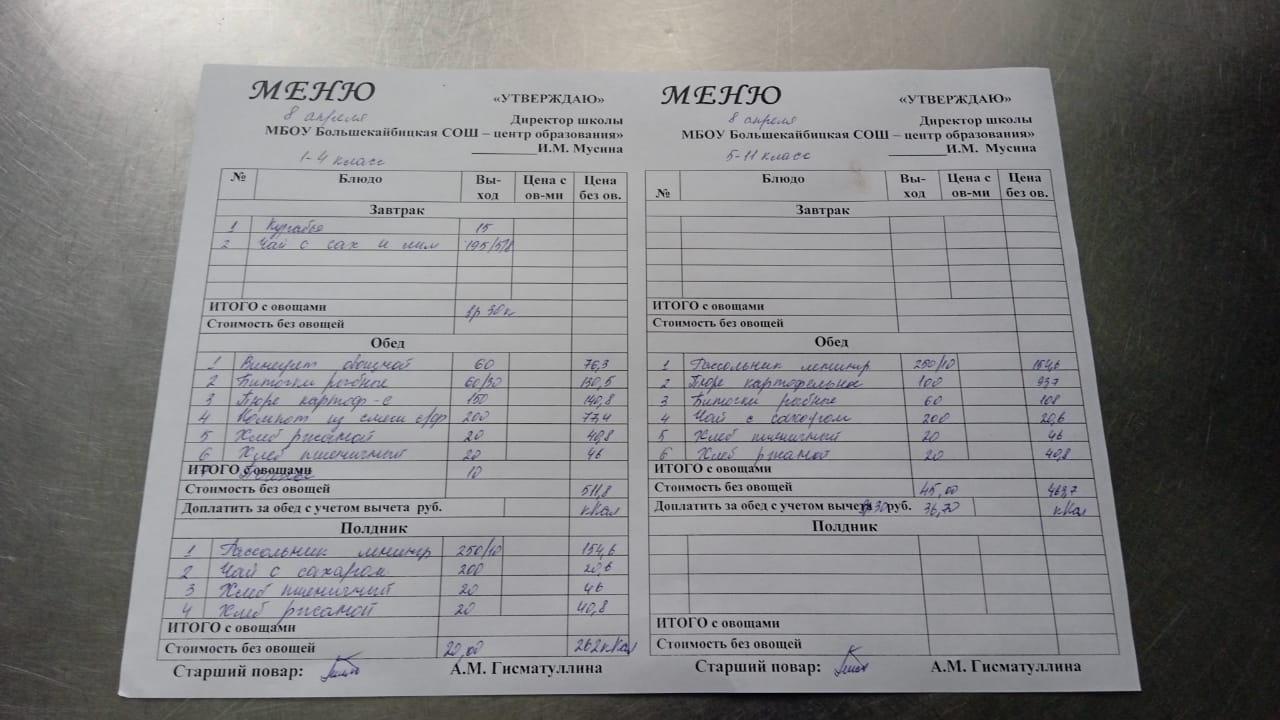 МЕНЮ
«УТВЕРЖДАЮ»
8 апреля
Директор школы
МБОУ Большекайбицкая СОШ – центр образования»
__________И.М. Мусина
1-4 класс
№ Блюдо Вы-ход Цена с ов-ми Цена без ов.
Завтрак
1 Курабье 15
2 Чай с сах и лим
ИТОГО с овощами
Стоимость без овощей
Обед
1 Винегрет овощной 60 76,3
2 Биточки рыбные 60/30 130,5
3 Пюре картоф-е 150 140,8
4 Компот из смеси с/ф 200 77,4
5 Хлеб ржаной 20 40,8
6 Хлеб пшеничный 20 46
ИТОГО с овощами 10
Стоимость без овощей 511,8
Доплатить за обед с учетом вычета руб. кКал
Полдник
1 Рассольник ленингр 250/10 154,6
2 Чай с сахаром 200 20,6
3 Хлеб пшеничный 20 46
4 Хлеб ржаной 20 40,8
ИТОГО с овощами
Стоимость без овощей 20,00 262кКал
Старший повар: А.М. Гисматуллина
МЕНЮ
«УТВЕРЖДАЮ»
8 апреля
Директор школы
МБОУ Большекайбицкая СОШ – центр образования»
__________И.М. Мусина
5-11 класс
№ Блюдо Вы-ход Цена с ов-ми Цена без ов.
Завтрак
ИТОГО с овощами
Стоимость без овощей
Обед
1 Рассольник ленингр 250/10 154,6
2 Пюре картофельное 100 93,7
3 Биточки рыбные 60 108
4 Чай с сахаром 200 20,6
5 Хлеб пшеничный 20 46
6 Хлеб ржаной 20 40,8
ИТОГО с овощами
Стоимость без овощей 45,00 463,7
Доплатить за обед с учетом вычета руб. 36,70 кКал
Полдник
ИТОГО с овощами
Стоимость без овощей
Старший повар: А.М. Гисматуллина